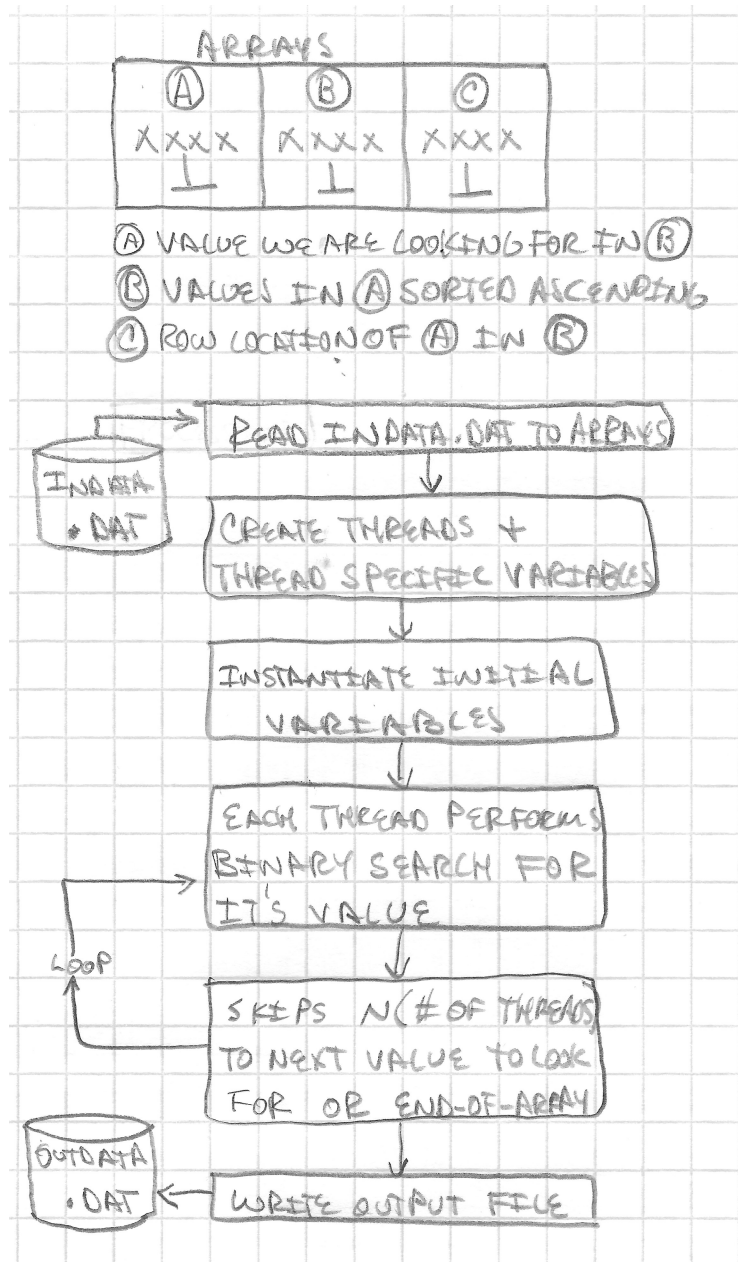 ARRAYS
A B C
XXXX XXXX XXXX
A VALUE WE ARE LOOKING FOR IN B
B VALUES IN A SORTED ASCENDING
C ROW LOCATION OF A IN B
READ INDATA.DAT TO ARRAYS
INDATA
.DAT
CREATE THREADS +
THREAD SPECIFIC VARIABLES
INSTANTIATE INITIAL
VARIABLES
EACH THREAD PERFORMS
BINARY SEARCH FOR
IT'S VALUE
LOOP
SKIPS N(# OF THREADS)
TO NEXT VALUE TO LOOK
FOR OR END-OF-ARRAY
OUTDATA
.DAT
WRITE OUTPUT FILE